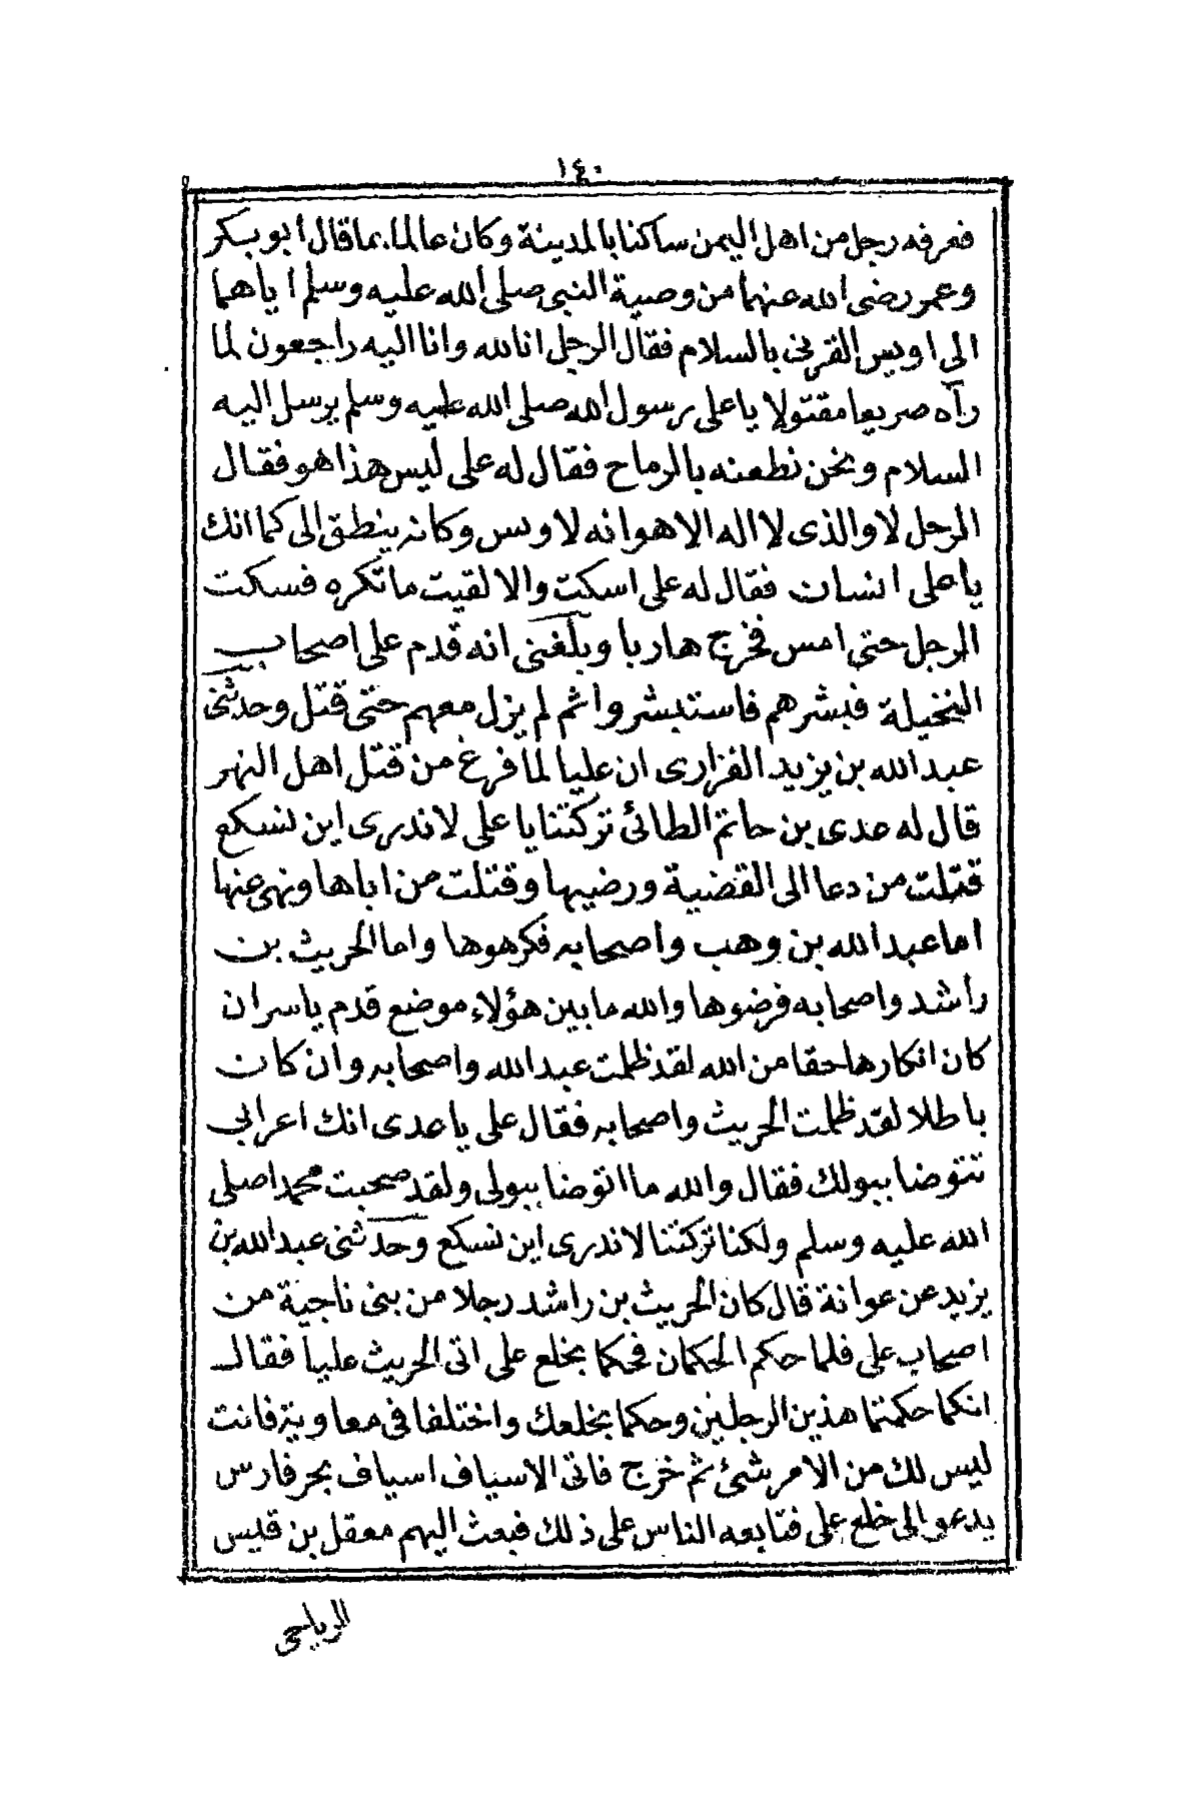 ١٤٠
فعرفه رجل من اهل اليمن ساكنا بالمدينة وكان عالما بما قال ابو بكر
وعمر رضى الله عنهما من وصية النبى صلى الله عليه وسلم اياهما
الى اويس القرنى بالسلام فقال الرجل انا لله وانا اليه راجعون لما
رآه صريعا مقتولا يا على رسول الله صلى الله عليه وسلم يرسل اليه
السلام ونحن نطعنه بالرماح فقال له على ليس هذا هو فقال
الرجل لا والذى لا اله الا هو انه لا ويس وكانه ينطق الى كما انك
يا على انسان فقال له على اسكت والا لقيت ما تكره فسكت
الرجل حتى امس فخرج هاربا وبلغنى انه قدم على اصحاب
النخيلة فبشرهم فاستبشروا ثم لم يزل معهم حتى قتل وحدثنى
عبد الله بن يزيد الفزارى ان عليا لما فرغ من قتل اهل النهر
قال له عدى بن حاتم الطائى تركتنا يا على لا ندرى اين نسكع
قتلت من دعا الى القضية ورضيها وقتلت من اباها ونهى عنها
اما عبد الله بن وهب واصحابه فكرهوها واما الحريث بن
راشد واصحابه فرضوها والله ما بين هؤلاء موضع قدم ياسر ان
كان انكارها حقا من الله لقد ظلمت عبد الله واصحابه وان كان
باطلا لقد ظلمت الحريث واصحابه فقال على يا عدى انك اعرابى
تتوضا ببولك فقال والله ما اتوضا ببولى ولقد صحبت محمدا صلى
الله عليه وسلم ولكنا تركتنا لا ندرى اين نسكع وحدثنى عبد الله بن
يزيد عن عوانة قال كان الحريث بن راشد رجلا من بنى ناجية من
اصحاب على فلما حكم الحكمان فحكما بخلع على اتى الحريث عليا فقال
انكما حكمتما هذين الرجلين وحكما بخلعك واختلفا فى معاوية فانت
ليس لك من الامر شئ ثم خرج فاتى الاسياف اسياف بحر فارس
يدعو الى خلع على فتابعه الناس على ذلك فبعث اليهم معقل بن قيس
الرياحى